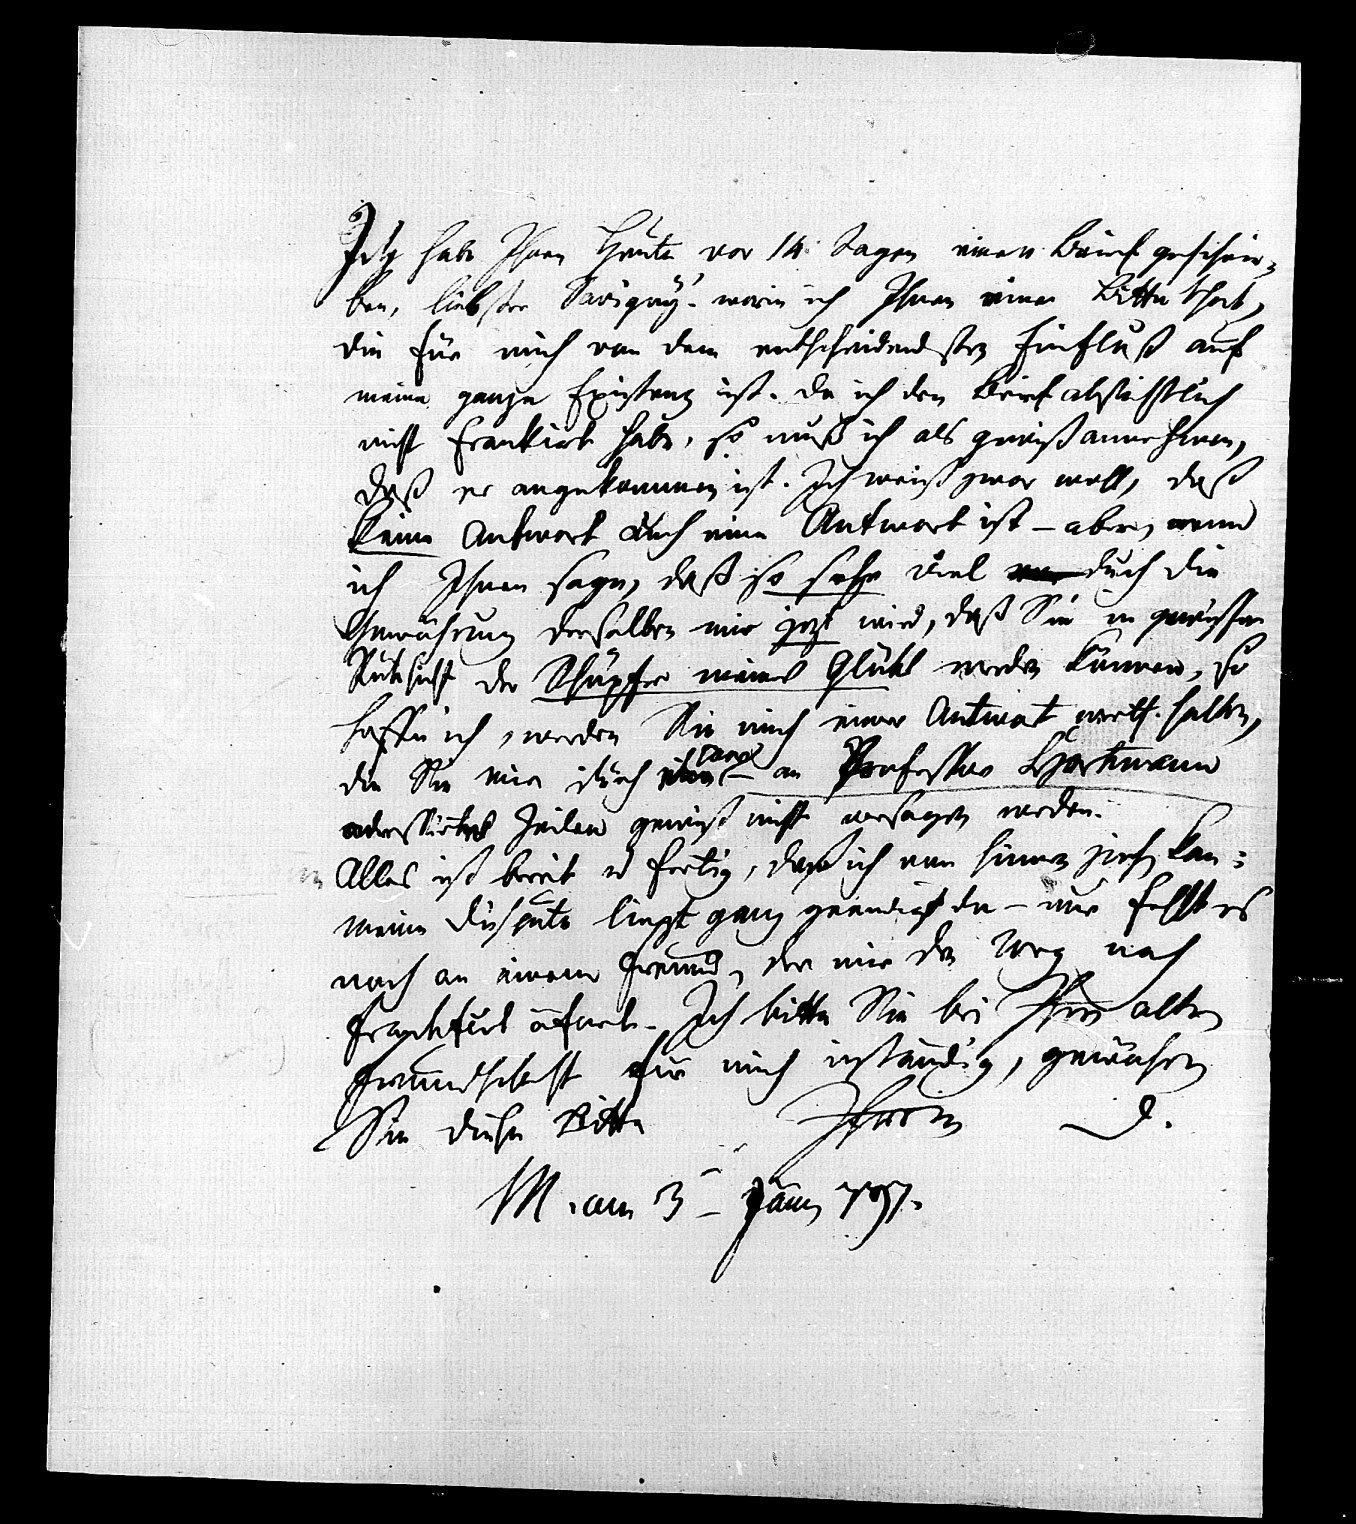 Ich habe Ihnen heute vor 14 Tagen einen Brief geschrie-
ben, liebster Savigny. worin ich Ihnen eine Bitte that,
die für mich von dem entscheidendsten Einfluß auf
meine ganze Existenz ist. Da ich den Brief absichtlich
nicht frankirt habe, so muß ich als gewiß annehmen,
daß er angekommen ist. Ich weiß zwar woll, daß
keine Antwort auch eine Antwort ist – aber, wenn
ich Ihnen sage, daß so sehr viel durch die
Gewährung derselben mir jezt wird, daß Sie in gewisser
Rüksicht der Schöpfer meines Glüks werden können, so
hoffe ich, werden Sie mich einer Antwort werth halten,
die Sie mir durch ein paar – an Professor Hartmann
adressirte Zeilen gewiß nicht versagen werden.
Alles ist bereit u fertig, daß ich von hinnen ziehen kan:
meine Dispute liegt ganz geendigt da – nur fehlt es
noch an einem Freund, der mir den Weg nach
Frankfurt öfnet. Ich bitte Sie bei Ihrer alten
Freundschaft für mich inständig, gewähren
Sie diese Bitte Ihrem D.
M. am 3 – Jänn 797.